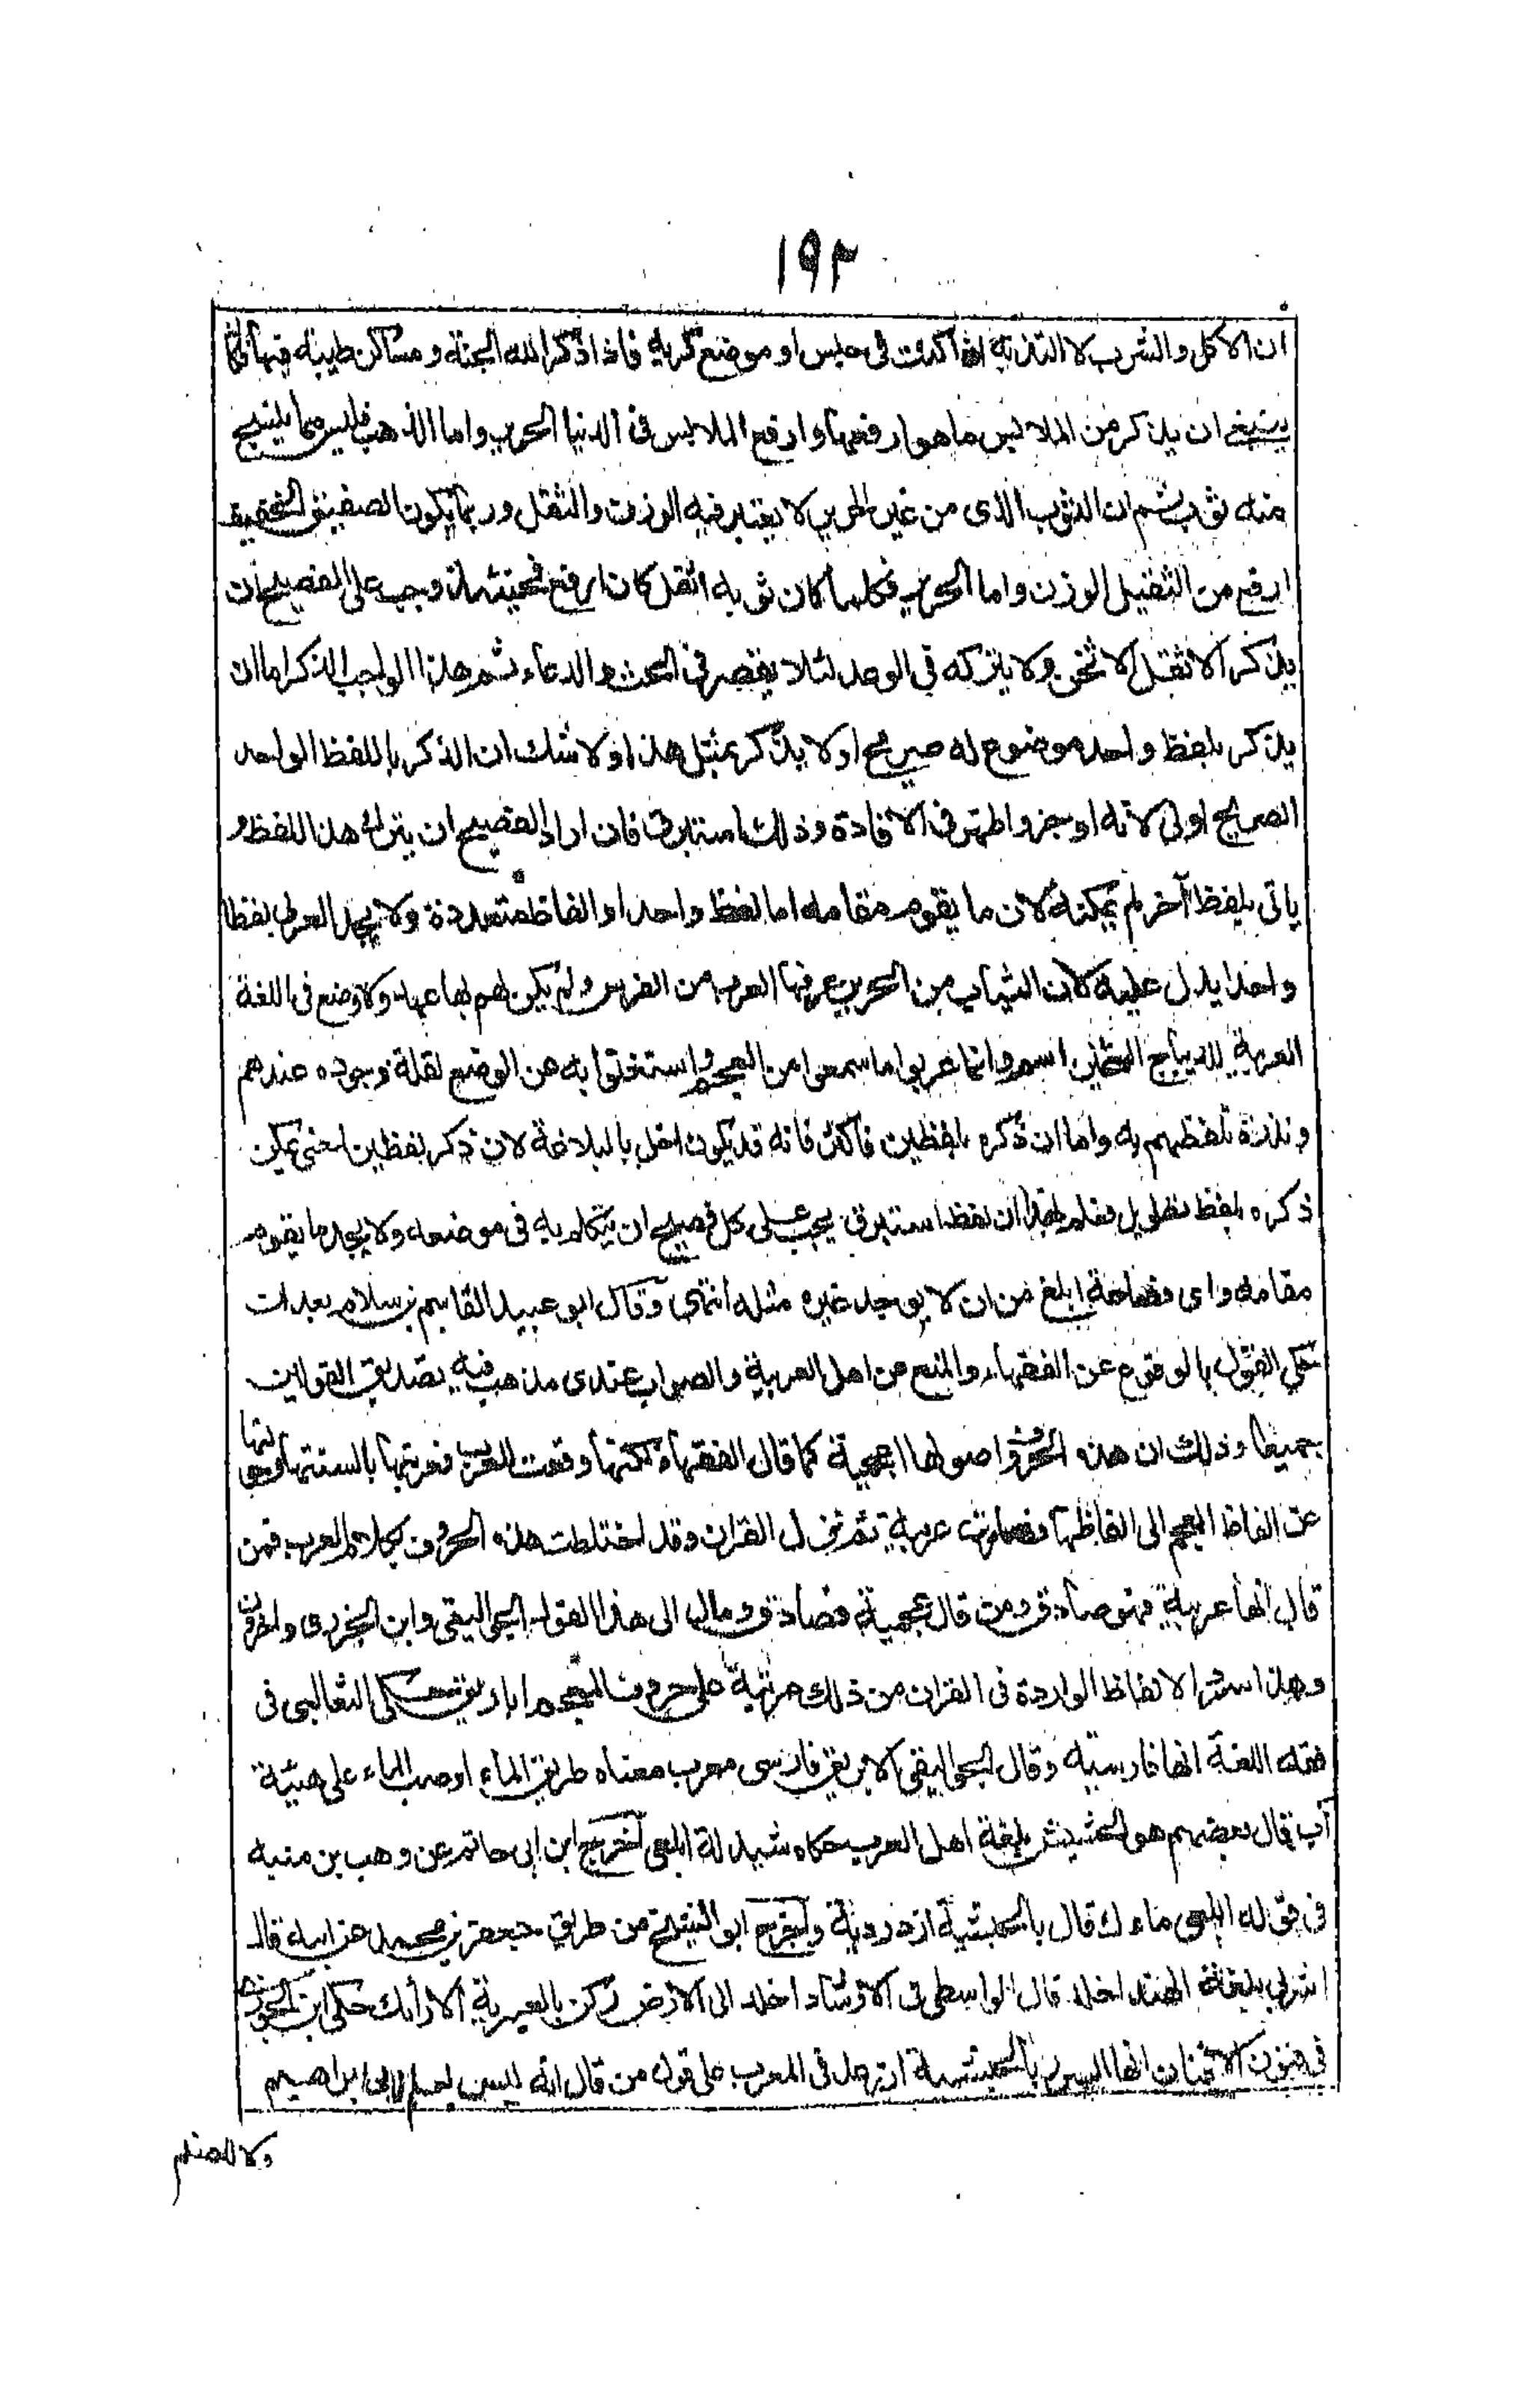 ١٩٢
ان الاكل والشرب لا التذ به اذا كنت فى حبس او موضع كريه فاذا ذكر الله الجنة ومساكن طيبة فيها
ينبغي ان يذكر من الملابس ما هو ارفعها وارفع الملابس فى الدنيا الحرير واما الذهب فليس مما ينسج
منه ثوب ثم ان الثوب الذى من غير الحرير لا يعتبر فيه الوزن والثقل وربما يكون الصفيق الخفيف
ارفع من الثقيل الوزن واما الحرير فكلما كان ثوبه اثقل كان ارفع فحينئذ وجب على الفصيح ان
يذكر الاثقل الاثخن ولا يتركه في الوعد لئلا يقصر فى الحث والدعاء ثم هذا الواجب الذكر اما ان
يذكر بلفظ واحد موضوع له صريح او لا يذكر بمثل هذا ولا شك ان الذكر باللفظ الواحد
الصريح اولى لانه اوجز واظهر فى الافادة وذلك استبرق فان اراد الفصيح ان يترك هذا اللفظ و
ياتى بلفظ آخر لم يمكنه لان ما يقوم مقامه اما لفظ واحد او الفاظ متعددة ولا يجد العربى لفظا
واحدا يدل عليه لان الثياب من الحرير عرفها العرب من الفرس ولم يكن لهم بها عهد ولا وضع فى اللغة
العربية للديباج الثخين اسم وانما عربوا ما سمعوا من العجم واستغنوا به عن الوضع لقلة وجوده عندهم
وندرة تلفظهم به واما ان ذكره بلفظين فاكثر فانه قد يكون اخل بالبلاغة لان ذكر لفظين لمعنى يمكن
ذكره بلفظ تطويل فعلم بهذا ان لفظ استبرق يجب على كل فصيح ان يتكلم به فى موضعه ولا يجد ما يقوم
مقامه واى فصاحة ابلغ من ان لا يوجد غيره مثله انتهى وقال ابو عبيد القاسم بن سلام بعد ان
حكي القول بالوقوع عن الفقهاء والمنع من اهل العربية والصواب عندى مذهب فيه تصديق القولين
جميعا وذلك ان هذه الحروف اصولها اعجمية كما قال الفقهاء لكنها وقعت للعرب فعربتها بالسنتها وحولتها
عن الفاظ العجم الى الفاظها فصارت عربية ثم نزل القران وقد اختلطت هذه الحروف بكلام العرب فمن
قال انها عربية فهو صادق ومن قال عجمية فصادق ومال الى هذا القول الجواليقى وابن الجزرى واخرون
وهذا سرد الالفاظ الواردة فى القران من ذلك مرتبة على حروف المعجم اباريق حكى الثعالبى فى
فقه اللغة انها فارسية وقال الجواليقى الابريق فارسى معرب معناه طريق الماء او صب الماء على هيئة
أب قال بعضهم هو الحشيش بلغة اهل الغرب حكاه شيدلة ابلعى اخرج ابن ابى حاتم عن وهب بن منبه
فى قوله ابلعى ماءك قال بالحبشية ازدرديه واخرج ابو الشيخ من طريق جعفر بن محمد عن ابيه قال
اشربى بلغة الهند اخلد قال الواسطى فى الارشاد اخلد الى الارض ركن بالعبرية الارائك حكى ابن الجوزى
في فنون الافنان انها السرر بالحبشية ازر عد فى المعرب على قول من قال انه ليس بعلم لابى ابراهيم
ولا للصنم